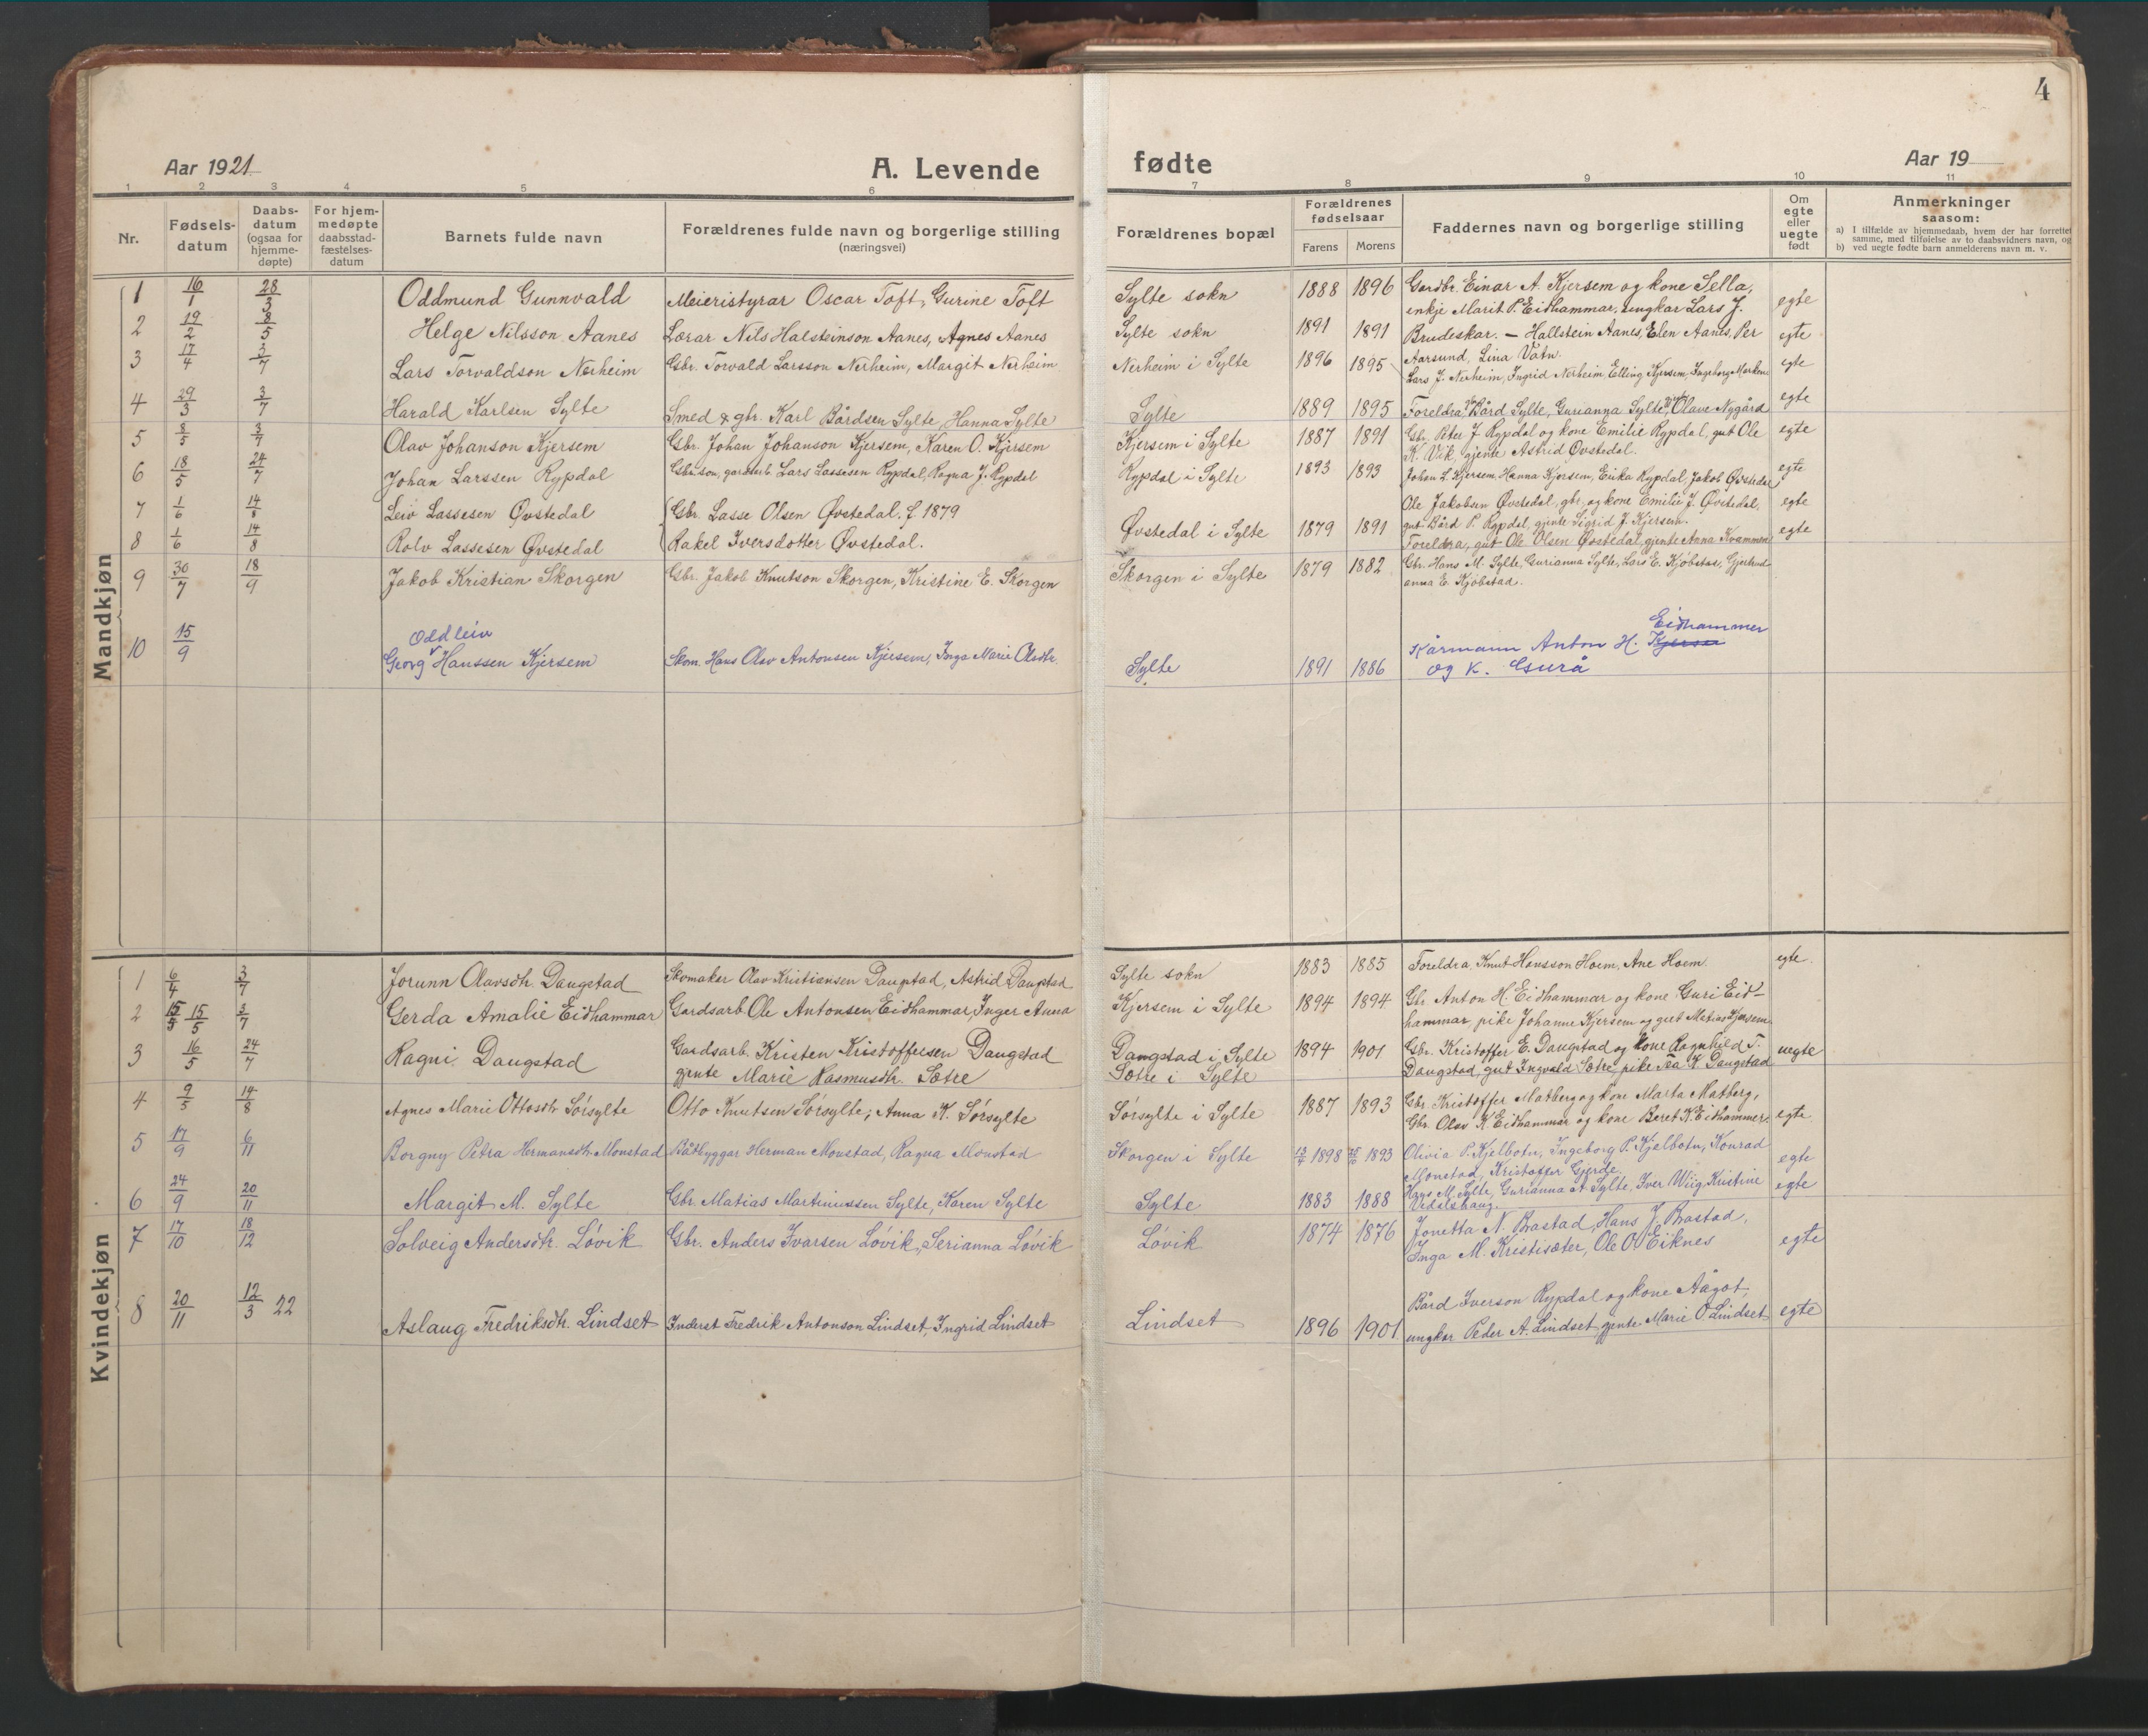 4
Aar 1921 A. Levende fødte Aar 19
1 2 3 4 5 6 7 8 9 10 11
Nr. Fødsels-datum Daabs-datum (ogsaa for hjemme-døpte) For hjem-medøpte daabsstad-fæstelses-datum Barnets fulde navn Forældrenes fulde navn og borgerlige stilling (næringsvei) Forældrenes bopæl Forældrenes fødselsaar Farens Morens Faddernes navn og borgerlige stilling Om egte eller uegte født Anmerkninger saasom:
a) I tilfælde av hjemmedaab, hvem der har forrettet samme, med tilføielse av to daabsvidners navn, og
b) ved uegte fødte barn anmelderens navn m. v.
Mandkjøn
1 16/1 28/3 Oddmund Gunnvald Meieristyrar Oscar Toft, Gurine Toft Sylte sokn 1888 1896 Gardbr. Einar A. Kjersem og kone Sella, enkje Marit P. Eidhammar, ungkar Lars J. egte
2 19/2 8/5 Helge Nilsson Aanes Lærar Nils Halsteinson Aanes, Agnes Aanes Sylte sokn 1891 1891 Brudeskar. – Hallstein Aanes, Elen Aanes, Per egte
Aarsund, Lina Vatn.
3 17/4 3/7 Lars Torvaldson Nerheim Gbr. Torvald Larsson Nerheim, Margit Nerheim Nerheim i Sylte 1896 1895 Lars J. Nerheim, Ingrid Nerheim, Elling Kjersem, Ingeborg egte
4 29/3 3/7 Harald Karlsen Sylte Smed & gbr. Karl Bårdsen Sylte, Hanna Sylte Sylte 1889 1895 Foreldra, Bård Sylte, Gurianna Sylte, Olave Nygård egte
5 8/5 3/7 Olav Johanson Kjersem Gbr. Johan Johanson Kjersem, Karen O. Kjersem Kjersem i Sylte 1887 1891 Gbr. Peter J. Rypdal og kone Emilie Rypdal, gut Ole egte
K. Vik, gjente Astrid Øvstedal.
6 18/5 24/7 Johan Larssen Rypdal Gbr.son, gardarb. Lars Lassesen Rypdal, Ragna J. Rypdal Rypdal i Sylte 1893 1893 Johan L. Kjersem, Hanna Kjersem, Erika Rypdal, Jakob Øvstedal egte
7 1/6 14/8 Leiv Lassesen Øvstedal Gbr. Lasse Olsen Øvstedal. f. 1879 Ole Jakobsen Øvstedal, gbr. og kone Emilie J. Øvstedal, egte
gut Bård P. Rypdal, gjente Sigrid J. Kjersem.
8 1/6 14/8 Rolv Lassesen Øvstedal Rakel Iversdotter Øvstedal. Øvstedal i Sylte 1879 1891 Foreldra, gut Ole Olsen Øvstedal, gjente Anna Kvammen egte
9 30/7 18/9 Jakob Kristian Skorgen Gbr. Jakob Knutson Skorgen, Kristine E. Skorgen Skorgen i Sylte 1879 1882 Gbr. Hans M. Sylte, Gurianna Sylte, Lars E. Kjøbstad, Gjertrud
anna E. Kjøbstad.
Oddleiv Eidhammer
10 15/9 Georg Hanssen Kjersem Skom. Hans Olav Antonsen Kjersem, Inga Marie Olsdtr. Sylte 1891 1886 Kårmann Anton H. Kjersem
og k. Gurå
Kvindekjøn
1 6/4 3/7 Jorunn Olavsdtr. Daugstad Skomakar Olav Kristiansen Daugstad, Astrid Daugstad Sylte sokn 1883 1885 Foreldra, Knut Hansson Hoem, Ane Hoem. egte.
2 15/5 15/5 3/7 Gerda Amalie Eidhammar Gardsarb. Ole Antonsen Eidhammar, Inger Anna Kjersem i Sylte 1894 1894 Gbr. Anton H. Eidhammar og kone Guri Eid-
hammar, pike Johanne Kjersem og gut Matias Kjersem
3 16/5 24/7 Ragni Daugstad Gardsarb. Kristen Kristoffersen Daugstad Daugstad i Sylte 1894 1901 Gbr. Kristoffer E. Daugstad og kone Ragnhild T. uegte
gjente Marie Rasmusdtr. Sætre Sætre i Sylte Daugstad, gut Ingvald Sætre, pike Tea K. Daugstad
4 9/5 14/8 Agnes Marie Ottosdtr. Sørsylte Otto Knutsen Sørsylte, Anna K. Sørsylte Sørsylte i Sylte 1887 1893 Gbr. Kristoffer Malberg og kone Marta Malberg,
Gbr. Olav K. Eidhammar og kone Beret K. Eidhammer. egte
5 17/9 6/11 Borgny Petra Hermansdtr. Monstad Båtbyggar Herman Monstad, Ragna Monstad Skorgen i Sylte 1898 1893 Olivia P. Kjelbotn, Ingeborg P. Kjelbotn, Konrad
Monstad, Kristoffer Gjerde. egte
6 24/9 20/11 Margit M. Sylte Gbr. Matias Martinussen Sylte, Karen Sylte Sylte 1883 1888 Hans M. Sylte, Gurianna A. Sylte, Iver Wiig, Kristine egte
7 17/10 18/12 Solveig Andersdtr. Løvik Gbr. Anders Ivarsen Løvik, Serianna Løvik Løvik 1874 1876 Jonetta N. Brastad, Hans J. Brastad,
Inga M. Kristisæter, Ole O. Eiknes egte
8 20/11 12/3 22 Aslaug Fredriksdtr. Lindset Inderst Fredrik Antonson Lindset, Ingrid Lindset Lindset 1896 1901 Bård Iverson Rypdal og kone Aågot,
ungkar Peder A. Lindset, gjente Marie O. Lindset egte